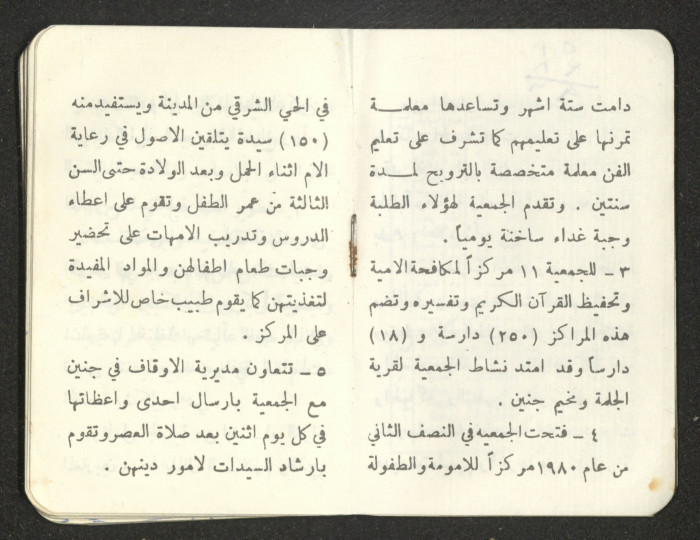 دامت ستة اشهر وتساعدها معلمة
تمرنها على تعليمهم كما تشرف على تعليم
الفن معلمة متخصصة بالترويح لمدة
سنتين . وتقدم الجمعية لهؤلاء الطلبة
وجبة غداء ساخنة يومياً .
٣ ـ للجمعية ١١ مركزاً لمكافحة الامية
وتحفيظ القرآن الكريم وتفسيره وتضم
هذه المراكز (٢٥٠) دارسة و (١٨)
دارساً وقد امتد نشاط الجمعية لقرية
الجلمة ومخيم جنين .
٤ ـ فتحت الجمعيه في النصف الثاني
من عام ١٩٨٠ مركزاً للامومة والطفولة
في الحي الشرقي من المدينة ويستفيد منه
(١٥٠) سيدة يتلقين الاصول في رعاية
الام اثناء الحمل وبعد الولادة حتى السن
الثالثة من عمر الطفل وتقوم على اعطاء
الدروس وتدريب الامهات على تحضير
وجبات طعام اطفالهن والمواد المفيدة
لتغذيتهن كما يقوم طبيب خاص للاشراف
على المركز .
٥ ـ تتعاون مديرية الاوقاف في جنين
مع الجمعية بارسال احدى واعظاتها
في كل يوم اثنين بعد صلاة العصر وتقوم
بارشاد السيدات لامور دينهن .